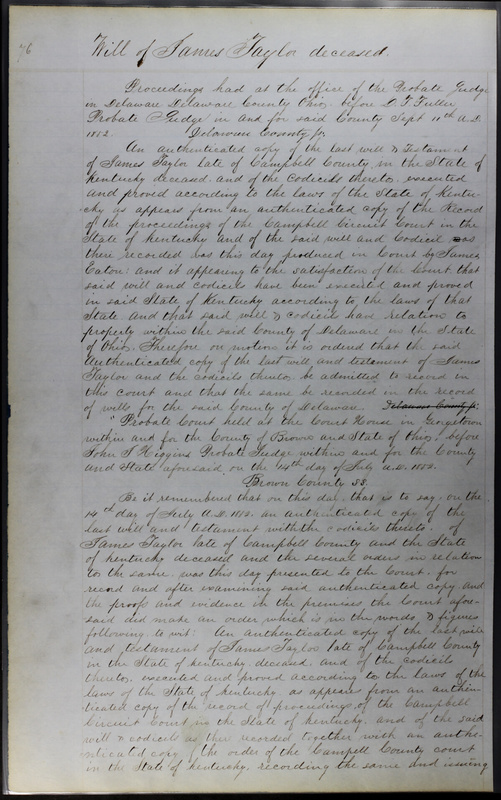 76
Will of James Taylor deceased.
Proceedings had at the office of the Probate Judge
in Delaware Delaware County Ohio, before D. T. Fuller
Probate Judge in and for said County Sept 11th A.D.
1852. Delaware County ss.
An authenticated copy of the last will & Testament
of James Taylor late of Campbell County in the State of
Kentucky deceased, and of the Codicils thereto, executed
and proved according to the laws of the State of Kentu-
cky as appears from an authenticated copy of the Record
of the proceedings of the Campbell Circuit Court in the
State of Kentucky and of the said will and Codicil as
there recorded was this day produced in Court by James
Eaton: and it appearing to the satisfaction of the Court that
said will and codicils have been executed and proved
in said State of Kentucky according to the laws of that
State and that said will & codicils have relation to
property within the said County of Delaware in the State
of Ohio. Therefore on motion it is orderd that the said
Authenticated copy of the last will and testament of James
Taylor and the codicils thereto be admitted to record in
this court and that the same be recorded in the record
of wills for the said County of Delaware. Delaware County ss.
"Probate Court held at the Court House in Georgetown
within and for the County of Brown and State of Ohio, before
John J Higgins Probate Judge within and for the County
and State aforesaid on the 14th day of July A.D. 1852.
Brown County SS.
Be it remembered that on this day, that is to say, on the
14th day of July A.D. 1852. an authenticated copy of the
last will and testament with the codicils thereto, of
James Taylor late of Campbell County and the State
of Kentucky deceased and the several orders in relation
to the same, was this day presented to the Court, for
record and after examining said authenticated copy and
the proofs and evidence in the premises the Court afore-
said did make an order which is in the words & figures
following to wit: An authenticated copy of the last will
and testament of James Taylor late of Campbell County
in the State of Kentucky, deceased, and of the codicils
thereto, executed and proved according to the laws of the
laws of the State of Kentucky, as appears from an authen-
ticated copy of the record of proceedings, of the Campbell
Circuit Court in the State of Kentucky, and of the said
will & codicils as there recorded together with an authe-
nticated copy of the order of the Campell County court
in the State of Kentucky, recording the same and issuing